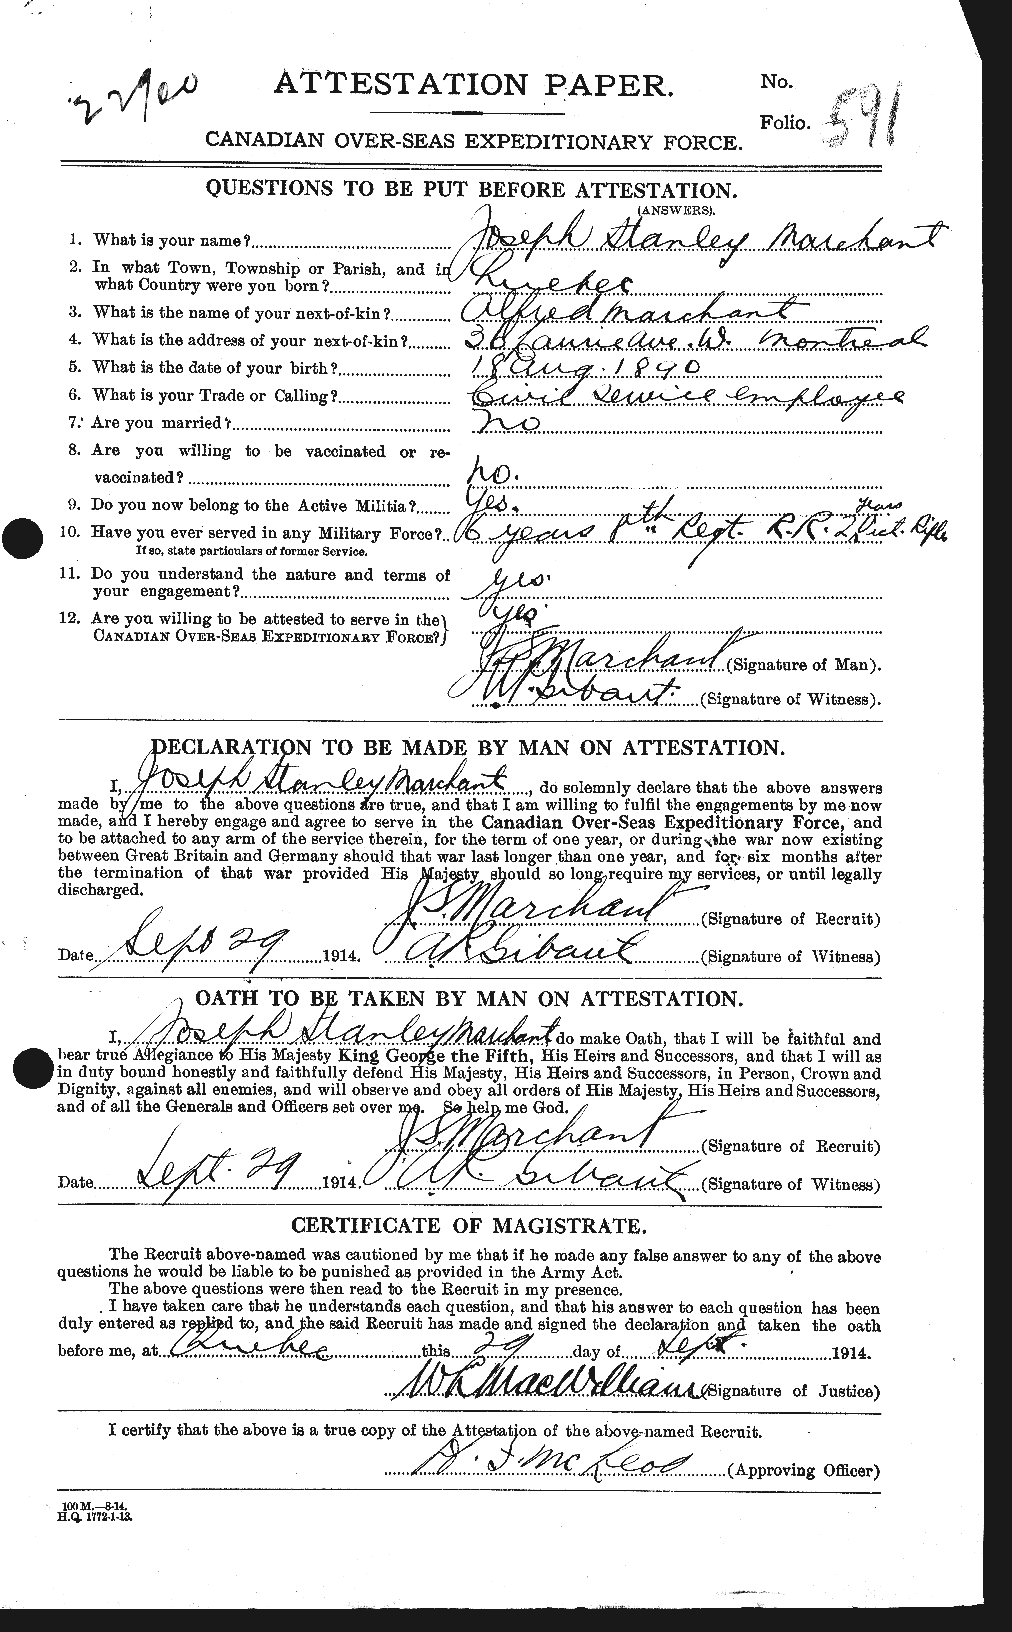 22900
ATTESTATION PAPER.
No.
Folio. 591
CANADIAN OVER-SEAS EXPEDITIONARY FORCE.
QUESTIONS TO BE PUT BEFORE ATTESTATION.
(ANSWERS).
1. What is your name? Joseph Stanley Marchant
2. In what Town, Township or Parish, and in
what Country were you born? Quebec
3. What is the name of your next-of-kin? Alfred Marchant
4. What is the address of your next-of-kin? Laurie Ave. W. Montreal
5. What is the date of your birth? 18 Aug. 1890
6. What is your Trade or Calling? Civil Service employee
7. Are you married? No
8. Are you willing to be vaccinated or re-
vaccinated? No.
9. Do you now belong to the Active Militia? Yes.
10. Have you ever served in any Military Force? 6 years 8th Regt. R.R. 2 years Vict. Rifle
If so, state particulars of former Service.
11. Do you understand the nature and terms of
your engagement? yes.
12. Are you willing to be attested to serve in the
CANADIAN OVER-SEAS EXPEDITIONARY FORCE? yes
J S Marchant (Signature of Man).
(Signature of Witness).
DECLARATION TO BE MADE BY MAN ON ATTESTATION.
I, Joseph Stanley Marchant, do solemnly declare that the above answers
made by me to the above questions are true, and that I am willing to fulfil the engagements by me now
made, and I hereby engage and agree to serve in the Canadian Over-Seas Expeditionary Force, and
to be attached to any arm of the service therein, for the term of one year, or during the war now existing
between Great Britain and Germany should that war last longer than one year, and for six months after
the termination of that war provided His Majesty should so long require my services, or until legally
discharged.
J S Marchant (Signature of Recruit)
Date Sept 29 1914. (Signature of Witness)
OATH TO BE TAKEN BY MAN ON ATTESTATION.
I, Joseph Stanley Marchant do make Oath, that I will be faithful and
bear true Allegiance to His Majesty King George the Fifth, His Heirs and Successors, and that I will as
in duty bound honestly and faithfully defend His Majesty, His Heirs and Successors, in Person, Crown and
Dignity, against all enemies, and will observe and obey all orders of His Majesty, His Heirs and Successors,
and of all the Generals and Officers set over me. So help me God.
J S Marchant (Signature of Recruit)
Date Sept. 29 1914. (Signature of Witness)
CERTIFICATE OF MAGISTRATE.
The Recruit above-named was cautioned by me that if he made any false answer to any of the above
questions he would be liable to be punished as provided in the Army Act.
The above questions were then read to the Recruit in my presence.
I have taken care that he understands each question, and that his answer to each question has been
duly entered as replied to, and the said Recruit has made and signed the declaration and taken the oath
before me, at Quebec this 29 day of Sept. 1914.
MacWilliams (Signature of Justice)
I certify that the above is a true copy of the Attestation of the above-named Recruit.
McLeod (Approving Officer)
100 M.—8-14.
H.Q. 1772-1-13.